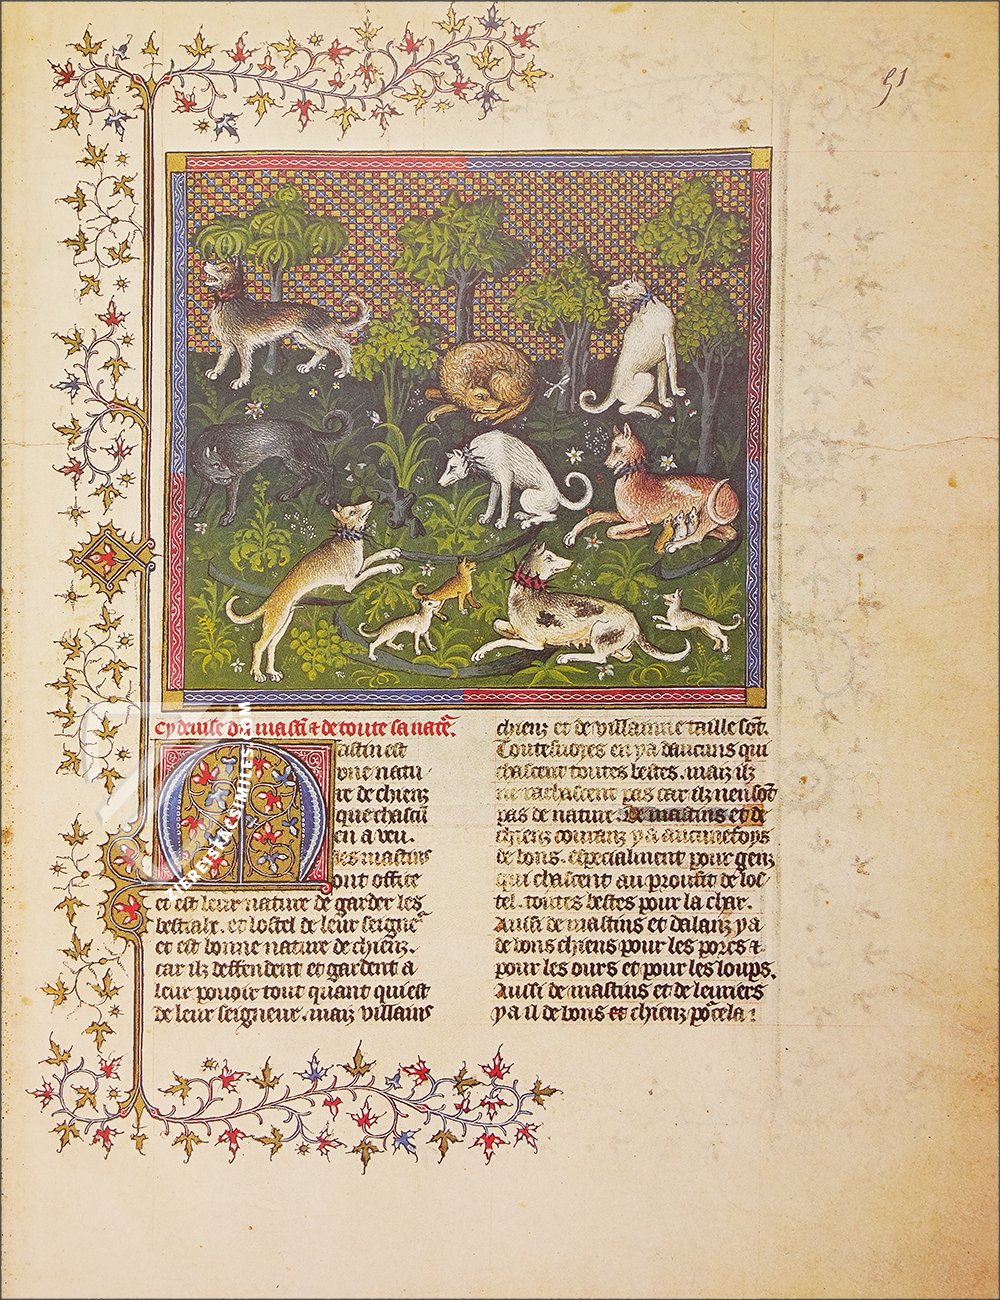 51
Cy deuise du mastĩ & de toute sa natẽ.
Mastin est
vne natu
re de chienz
que chascũ
en a veu.
Les mastins
ont office
et est leur nature de garder les
bestialx. et lostel de leur seignẽ
et est bonne nature de chienz.
car ilz deffendent et gardent a
leur pouoir tout quant qui est
de leur seigneur. maiz villains
chienz et de villainne taille sõt.
Toutesuoyes en ya daucuns qui
chascent toutes bestes. maiz ilz
ne rachascent pas car ilz nen sõt
pas de nature. De mastins et de
chienz couranz ya aucunefoys
de bons. especialment pour genz
qui chascent au proufit de los
tel. toutes bestes pour la char.
Aussi de mastins et dalanz ya
de bons chiens pour les porcs &
pour les ours et pour les loups.
Aussi de mastins et de leuriers
ya il de bons et chienz põ cela:
ZIEREISFACSIMILES.COM